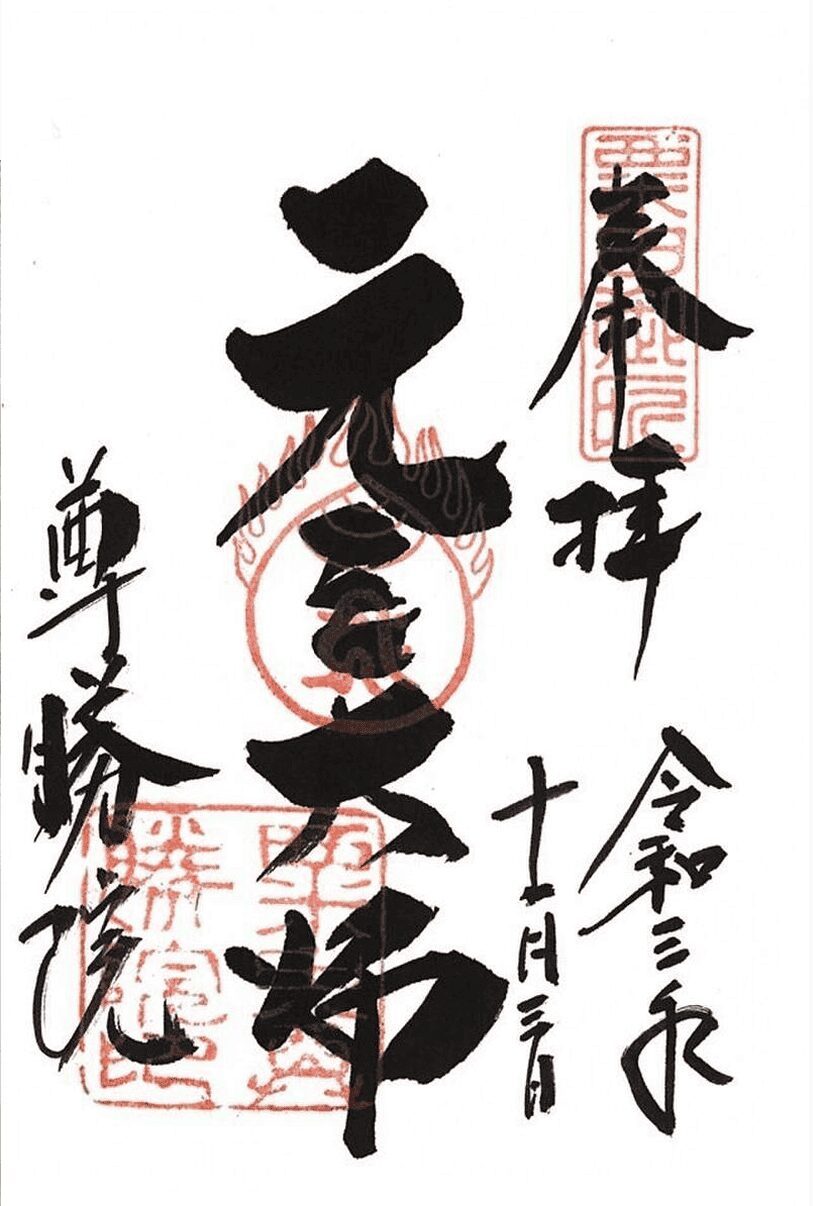 奉拝
令和三年
十一月三日
元三大師
尊勝院